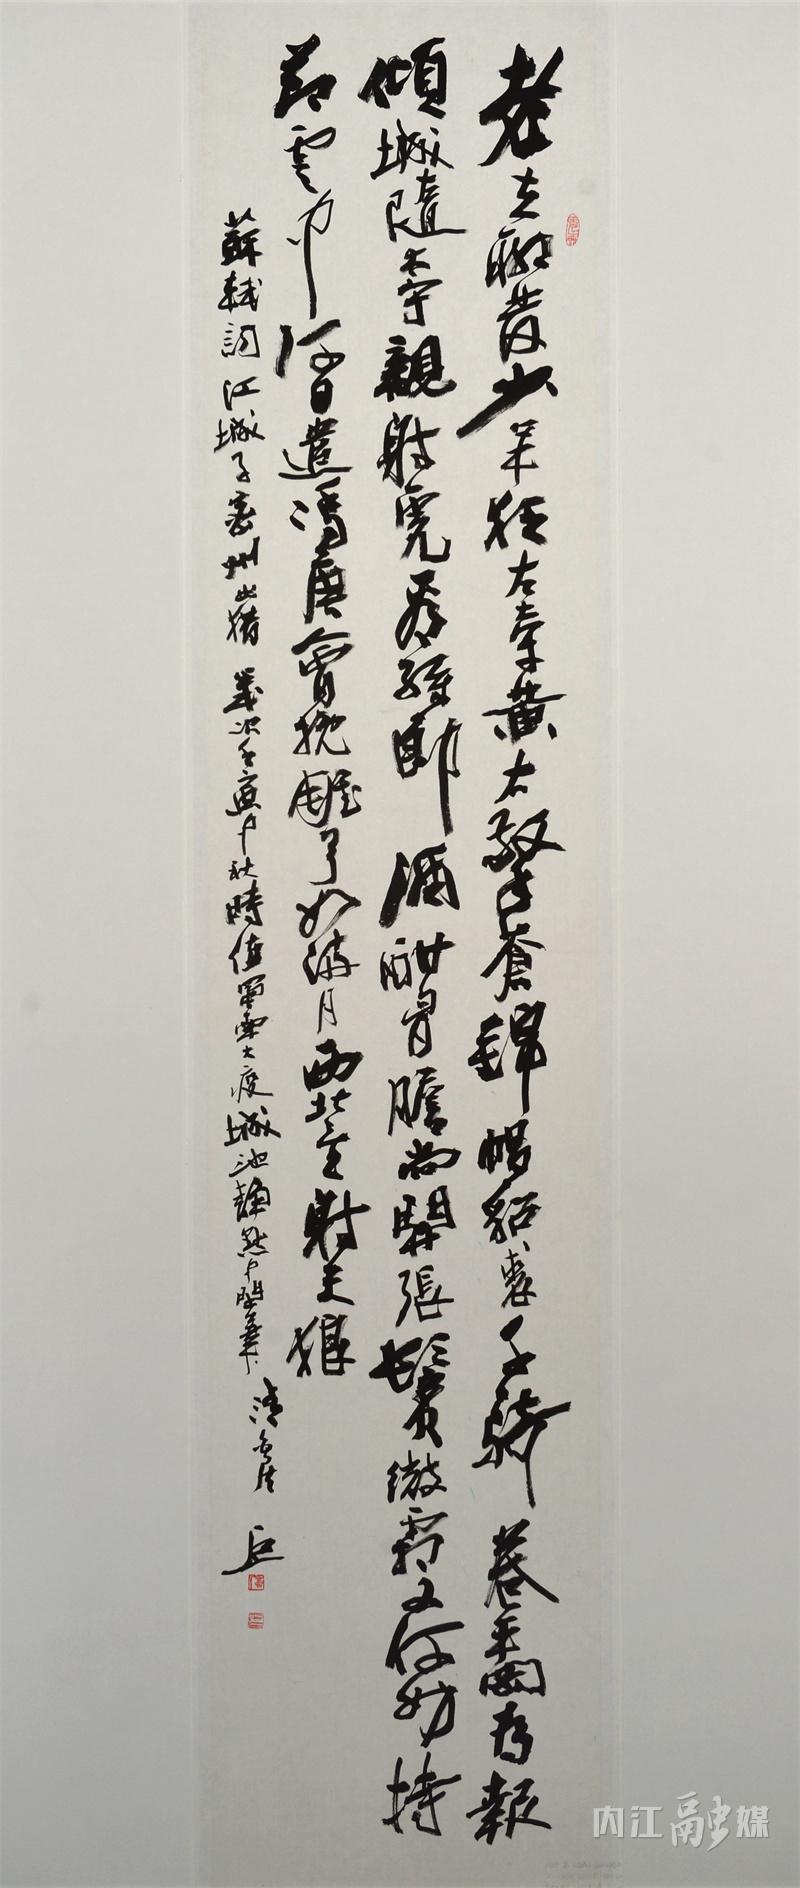 老夫聊發少年狂左牽黃右擎蒼錦帽貂裘千騎卷平岡為報
傾城隨太守親射虎看孫郎酒酣胷膽尚開張鬢微霜又何妨持
節雲中何日遣馮唐會挽雕弓如滿月西北望射天狼
蘇軾詞江城子密州出獵 歲次壬寅中秋時值大疫城池靜然中
内江融媒